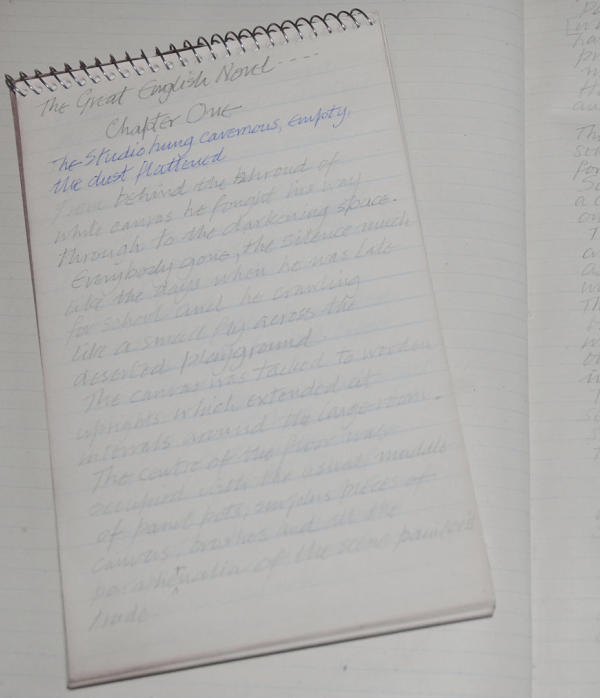 The Great English Novel ----
Chapter One
The Studio hung cavernous, empty,
the dust flattened
From behind the shroud of
white canvas he fought his way
through to the darkening space.
Everybody gone, the silence much
like the days when he was late
for school and he crawling
like a small fly across the
deserted playground.
The canvas was tacked to wooden
uprights which extended at
intervals around the large room.
The centre of the floor was
occupied with the usual muddle
of paint pots, surplus pieces of
canvas, brushes and all the
of the scene painter's
trade.